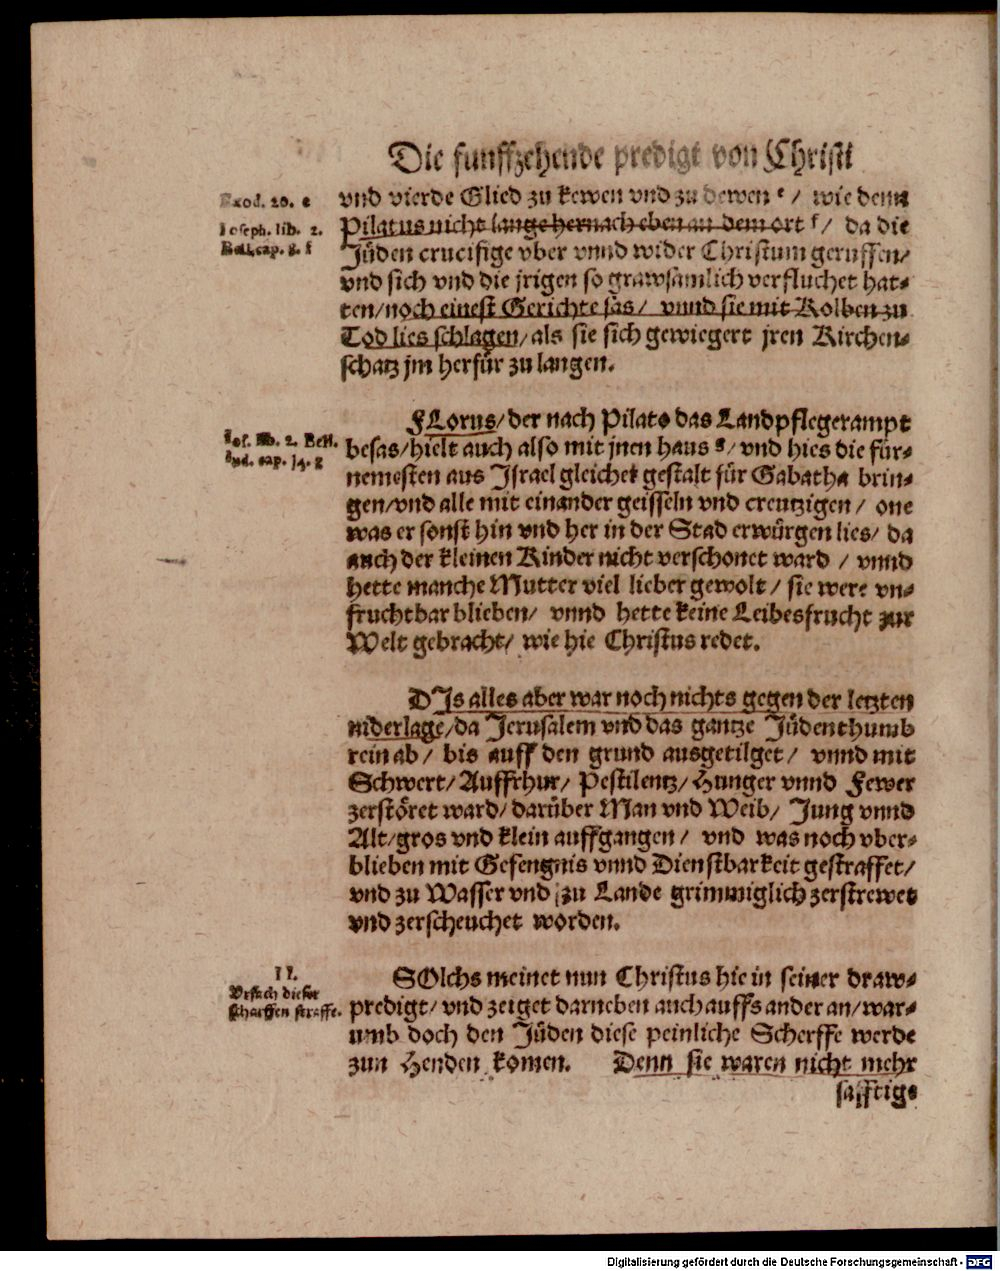 Die funffzehende predigt von Christi
Exod. 20. e
vnd vierde Glied zu kewen vnd zu dewen e / wie denn
Joseph. lib. 2.
Pilatus nicht lange hernach eben an dem ort f / da die
Bell. cap. 8. f
Jüden crucifige vber vnnd wider Christum geruffen/
vnd sich vnd die jrigen so grawsamlich verfluchet hat-
ten/noch einest Gerichte sas/ vnnd sie mit Kolben zu
Tod lies schlagen/als sie sich gewiegert jren Kirchen-
schatz jm herfür zu langen.
FLorus/der nach Pilato das Landpflegerampt
Jos. lib. 2. Bell.
besas/hielt auch also mit jnen haus g/ vnd hies die für-
Jud. cap. 14. g
nemesten aus Israel gleicher gestalt für Gabatha brin-
gen/vnd alle mit einander geisseln vnd creutzigen/ one
was er sonst hin vnd her in der Stad erwürgen lies/ da
auch der kleinen Kinder nicht verschonet ward / vnnd
hette manche Mutter viel lieber gewolt/ sie were vn-
fruchtbar blieben/ vnnd hette keine Leibesfrucht zur
Welt gebracht/ wie hie Christus redet.
DIs alles aber war noch nichts gegen der letzten
niderlage/da Jerusalem vnd das gantze Jüdenthumb
rein ab/ bis auff den grund ausgetilget/ vnnd mit
Schwert/Auffrhur/ Pestilentz/Hunger vnnd Fewer
zerstöret ward/darüber Man vnd Weib/ Jung vnnd
Alt/gros vnd klein auffgangen/ vnd was noch vber-
blieben mit Gefengnis vnnd Dienstbarkeit gestraffet/
vnd zu Wasser vnd zu Lande grimmiglich zerstrewet
vnd zerscheuchet worden.
II.
SOlchs meinet nun Christus hie in seiner draw-
Vrsach dieser
predigt/vnd zeiget darneben auch auffs ander an/war-
scharffen straffe.
umb doch den Jüden diese peinliche Scherffe werde
zun Henden komen. Denn sie waren nicht mehr
safftige
Digitalisierung gefördert durch die Deutsche Forschungsgemeinschaft - DFG